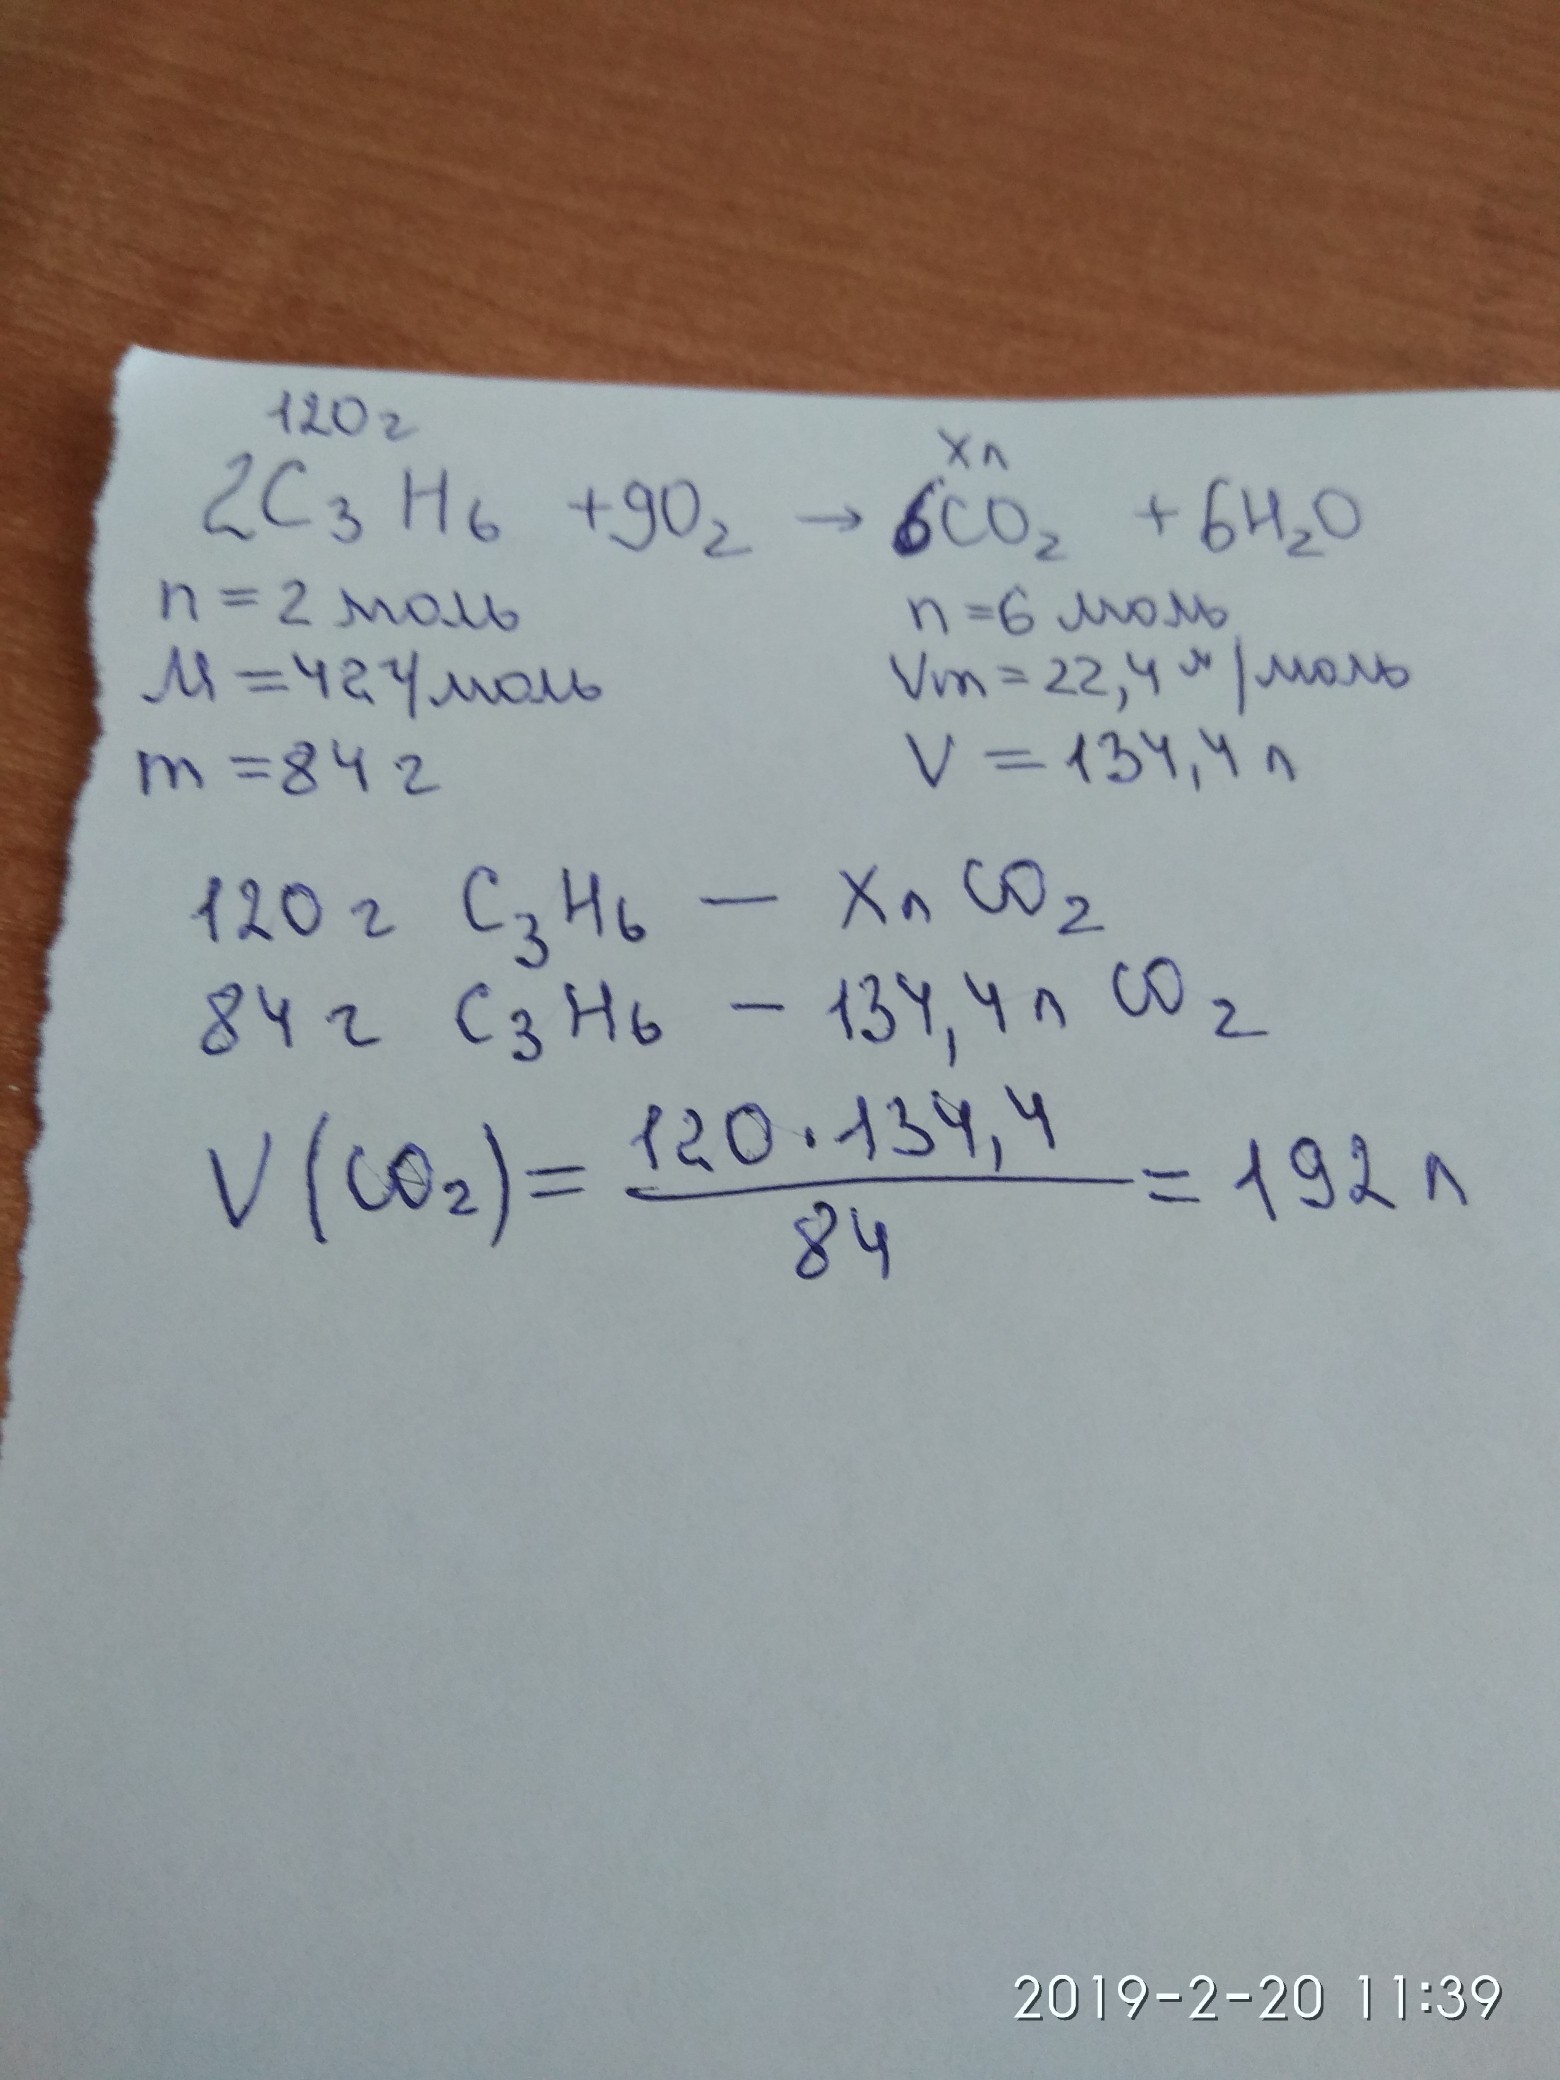 120 г
x л
2C₃H₆ + 9O₂ → 6CO₂ + 6H₂O
n = 2 моль n = 6 моль
M = 42 г/моль Vm = 22,4 л/моль
m = 84 г V = 134,4 л
120 г C₃H₆ — x л CO₂
84 г C₃H₆ — 134,4 л CO₂
V(CO₂) = 120 · 134,4 / 84 = 192 л
2019-2-20 11:39